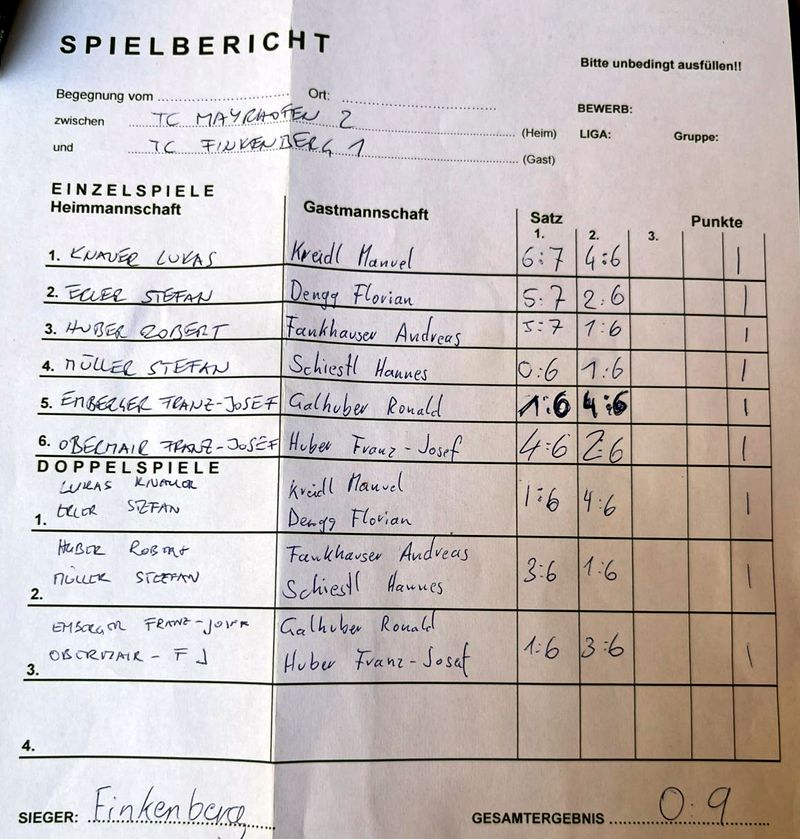 SPIELBERICHT
Bitte unbedingt ausfüllen!!
Begegnung vom Ort:
BEWERB:
zwischen TC MAYRHOFEN 2 (Heim) LIGA: Gruppe:
und TC FINKENBERG 1 (Gast)
EINZELSPIELE
Heimmannschaft Gastmannschaft Satz Punkte
1. 2. 3.
1. KNAUER LUKAS Kreidl Manuel 6:7 4:6 1
2. ERLER STEFAN Dengg Florian 5:7 2:6 1
3. HUBER ROBERT Fankhauser Andreas 5:7 1:6 1
4. MÜLLER STEFAN Schiestl Hannes 0:6 1:6 1
5. EMBERGER FRANZ-JOSEF Galhuber Ronald 1:6 4:6 1
6. OBERMAIR FRANZ-JOSEF Huber Franz-Josef 4:6 2:6 1
DOPPELSPIELE
LUKAS KNAUER Kreidl Manuel
1. ERLER STEFAN Dengg Florian 1:6 4:6 1
HUBER ROBERT Fankhauser Andreas
2. MÜLLER STEFAN Schiestl Hannes 3:6 1:6 1
EMBERGER FRANZ-JOSEF Galhuber Ronald
3. OBERMAIR - F J Huber Franz-Josef 1:6 3:6 1
4.
SIEGER: Finkenberg GESAMTERGEBNIS 0:9